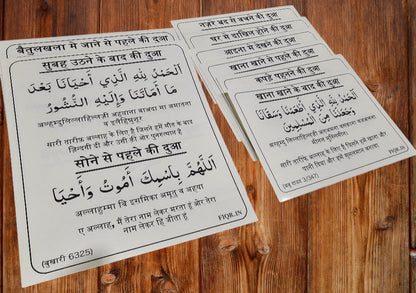 बैतुलखला में जाने से पहले की दुआ
सुबह उठने के बाद की दुआ
الْحَمْدُ لِلَّهِ الَّذِي أَحْيَانَا بَعْدَ
مَا أَمَاتَنَا وَإِلَيْهِ النُّشُورُ
अल्हम्दुलिल्लाहिल्लज़ी अहयाना बाअदा मा अमातना
व इलैहिन्नुशूर
सारी तारीफ़ अल्लाह के लिए है जिसने हमें मौत के बाद
ज़िन्दगी दी और उसी की और पुनरुत्थान है
सोने से पहले की दुआ
اللَّهُمَّ بِاسْمِكَ أَمُوتُ وَأَحْيَا
अल्लाहुम्मा बि इस्मिका अमूतु व अहया
ए अल्लाह, मैं तेरा नाम लेकर मरता हूं और तेरा
नाम लेकर हि जीता हूं
(बुखारी 6325)
FIQR.IN
नज़र बद से बचने की दुआ
घर में दाखिल होने की दुआ
आइना में देखने की दुआ
खाना खाने से पहले की दुआ
कपड़े पहनने की दुआ
खाना खाने के बाद की दुआ
الْحَمْدُ لِلَّهِ الَّذِي أَطْعَمَنَا وَسَقَانَا
وَجَعَلَنَا مِنَ الْمُسْلِمِينَ
सारी तारीफ अल्लाह के लिए है जिसने हमें खाना और
पानी दिया और हमें मुसलमान बनाया
FIQR.IN